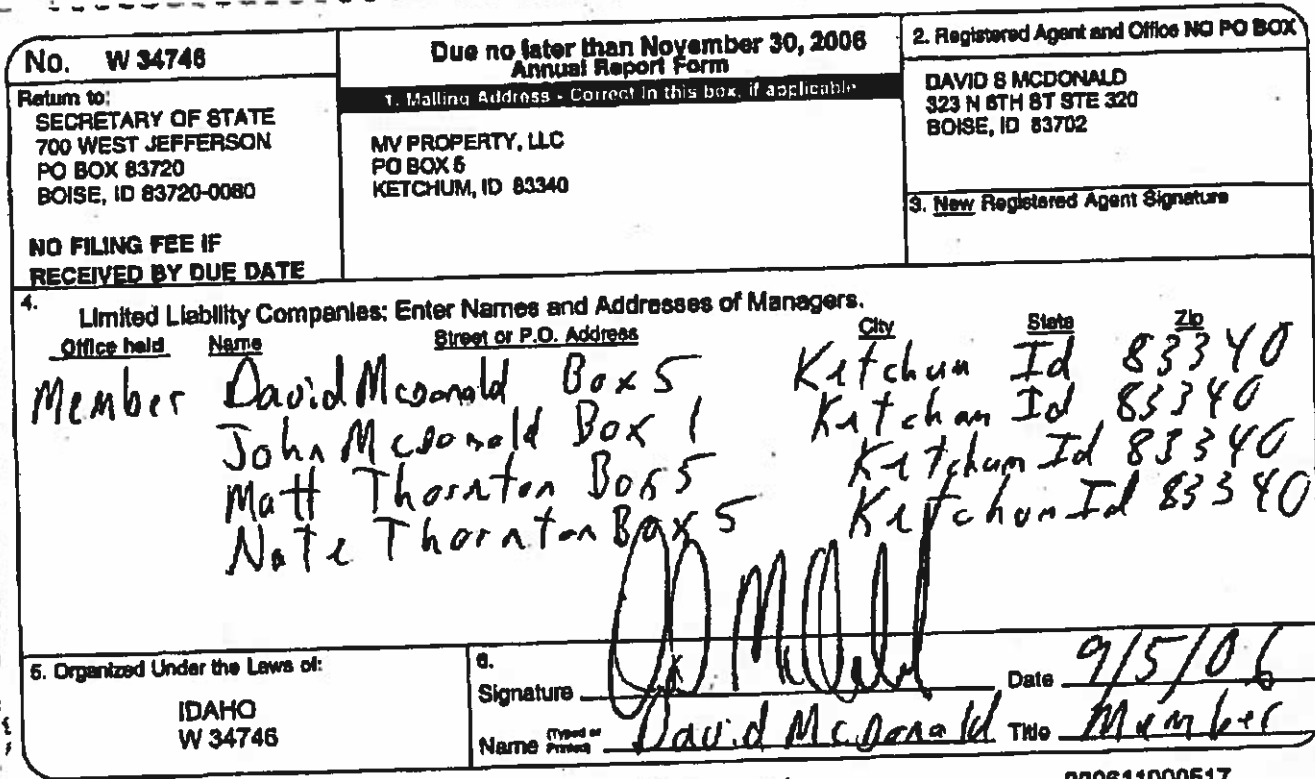 No. W 34746
Return to:
SECRETARY OF STATE
700 WEST JEFFERSON
PO BOX 83720
BOISE, ID 83720-0080
NO FILING FEE IF
RECEIVED BY DUE DATE
Due no later than November 30, 2006
Annual Report Form
1. Mailing Address - Correct in this box, if applicable
MV PROPERTY, LLC
PO BOX 5
KETCHUM, ID 83340
2. Registered Agent and Office NO PO BOX
DAVID S MCDONALD
323 N 6TH ST STE 320
BOISE, ID 83702
3. New Registered Agent Signature
4. Limited Liability Companies: Enter Names and Addresses of Managers.
Office held Name Street or P.O. Address City State Zip
Member David Mcdonald Box 5 Ketchum Id 83340
John Mcdonald Box 1 Ketchum Id 83340
Matt Thornton Box 5 Ketchum Id 83340
Nate Thornton Box 5 Ketchum Id 83340
5. Organized Under the Laws of:
IDAHO
W 34746
6.
Signature Date 9/5/06
Name (Typed or Printed) David McDonald Title Member